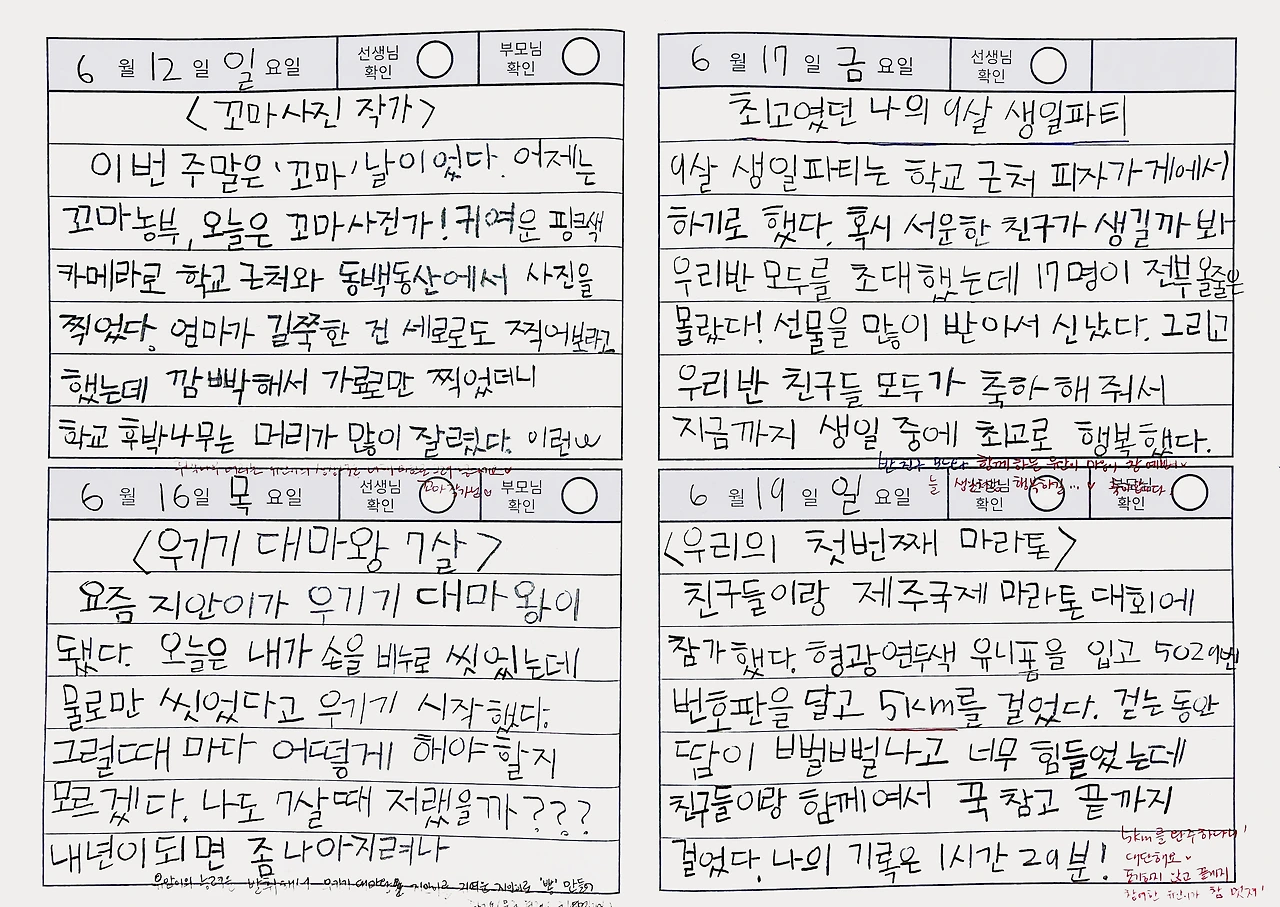 6 월 12 일 일 요일 선생님 확인 부모님 확인
<꼬마사진 작가>
이번 주말은 '꼬마'날이었다. 어제는
꼬마농부, 오늘은 꼬마사진가! 귀여운 핑크색
카메라로 학교 근처와 동백동산에서 사진을
찍었다. 엄마가 길쭉한 건 세로로도 찍어보라고
했는데 깜빡해서 가로로만 찍었더니
학교 후박나무는 머리가 많이 잘렸다. 이런ㅠ
꼬마작가님
6 월 16 일 목 요일 선생님 확인 부모님 확인
<우기기 대마왕 7살>
요즘 지안이가 우기기 대마왕이
됐다. 오늘은 내가 손을 비누로 씻었는데
물로만 씻었다고 우기기 시작했다.
그럴때 마다 어떻게 해야 할지
모르겠다. 나도 7살때 저랬을까???
내년이 되면 좀 나아지려나
6 월 17 일 금 요일 선생님 확인
최고였던 나의 9살 생일파티
9살 생일파티는 학교 근처 피자가게에서
하기로 했다. 혹시 서운한 친구가 생길까 봐
우리반 모두를 초대했는데 17명이 전부 올줄은
몰랐다! 선물을 많이 받아서 신났다. 그리고
우리반 친구들 모두가 축하해 줘서
지금까지 생일 중에 최고로 행복했다.
반 친구 모두다 함께하는 마음이 참 예쁘다
늘 행복하길... 축하합니다
6 월 19 일 일 요일 선생님 확인 부모님 확인
<우리의 첫번째 마라톤>
친구들이랑 제주국제 마라톤 대회에
참가했다. 형광연두색 유니폼을 입고 5029번
번호판을 달고 5km를 걸었다. 걷는 동안
땀이 삐뻘삐뻘나고 너무 힘들었는데
친구들이랑 함께여서 꾹 참고 끝까지
걸었다. 나의 기록은 1시간 29분!
5km를 완주하다니!
대단해요
포기하지 않고 끝까지
참 멋져!